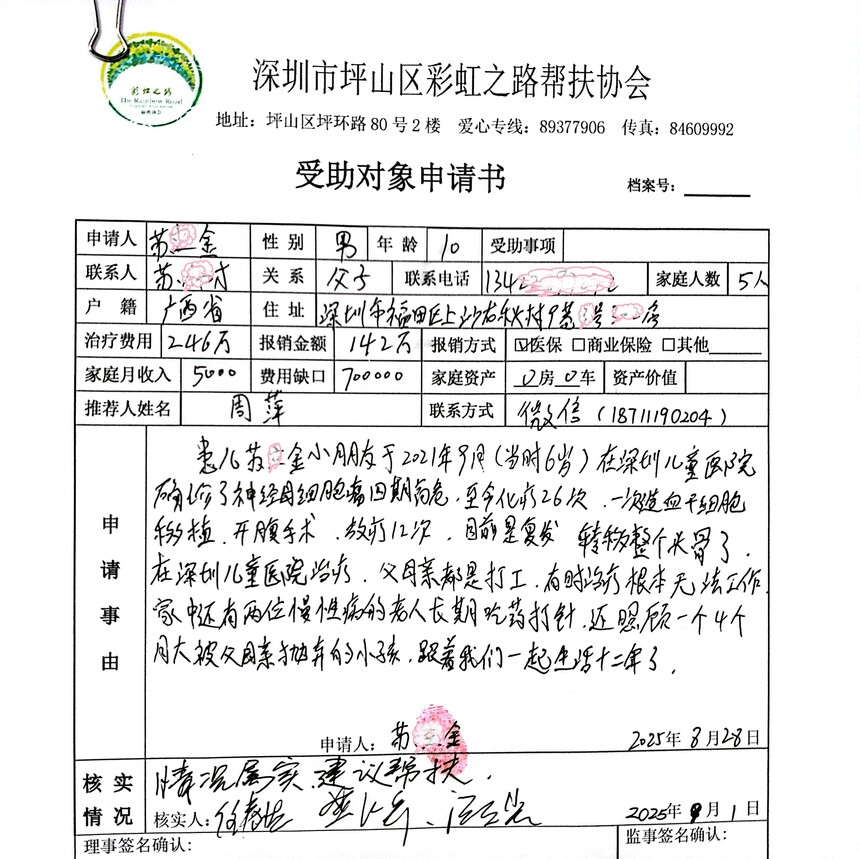 彩虹之路
The Rainbow Road
深圳市坪山区彩虹之路帮扶协会
地址：坪山区坪环路80号2楼 爱心专线：89377906 传真：84609992
受助对象申请书
档案号：
申请人 苏 金 性别 男 年龄 10 受助事项
联系人 苏 才 关系 父子 联系电话 134 家庭人数 5人
户籍 广西省 住址 深圳市福田区上沙 村 房
治疗费用 246万 报销金额 142万 报销方式 ☑医保 □商业保险 □其他
家庭月收入 5000 费用缺口 700000 家庭资产 0房0车 资产价值
推荐人姓名 周萍 联系方式 微信（18711190204）
申请事由
患儿苏 金小朋友于2021年9月（当时6岁）在深圳儿童医院
确诊了神经母细胞瘤四期高危，至今化疗26次，一次造血干细胞
移植，开腹手术，放疗12次，目前是复发 转移整个头骨了，
在深圳儿童医院治疗，父母亲都是打工，有时治疗根本无法工作，
家中还有两位慢性病的老人长期吃药打针，还照顾一个4个
月大被父母亲抛弃的小孩，跟着我们一起生活十二年了，
申请人：苏 金 2025年8月28日
核实情况
情况属实，建议帮扶，
核实人： 2025年9月1日
理事签名确认： 监事签名确认：